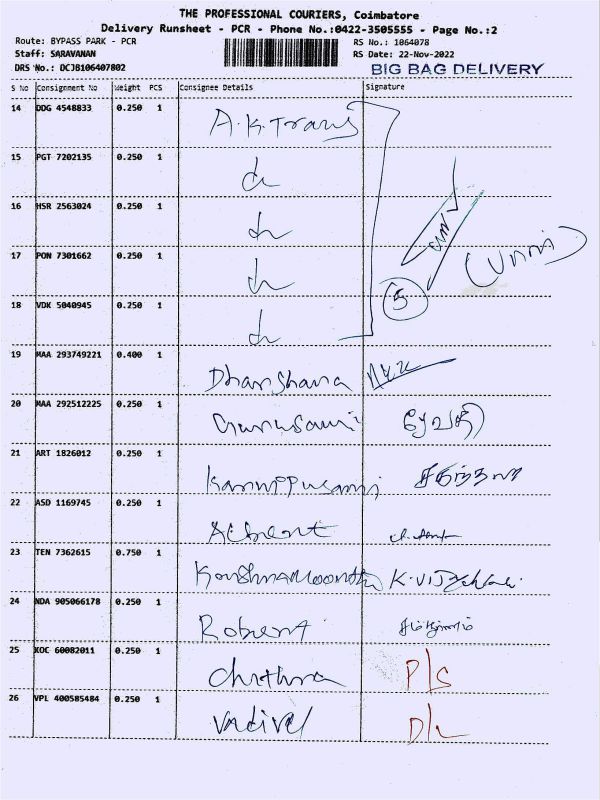 THE PROFESSIONAL COURIERS, Coimbatore
Delivery Runsheet - PCR - Phone No.:0422-3505555 - Page No.:2
Route: BYPASS PARK - PCR RS No.: 1064078
Staff: SARAVANAN RS Date: 22-Nov-2022
DRS No.: DCJB106407802 BIG BAG DELIVERY
S No Consignment No Weight PCS Consignee Details Signature
14 DDG 4548833 0.250 1 A.K.Trans
15 PGT 7202135 0.250 1
16 HSR 2563024 0.250 1
17 PON 7301662 0.250 1
18 VDK 5040945 0.250 1
5
19 MAA 293749221 0.400 1 Dharshana
20 MAA 292512225 0.250 1 Gurusami ரேவதி
21 ART 1826012 0.250 1 Karuppusami
22 ASD 1169745 0.250 1 Albert
23 TEN 7362615 0.750 1 Krishnamoorthy
24 NDA 905066178 0.250 1 Robert
25 KOC 60082011 0.250 1 Chithra P/S
26 VPL 400585484 0.250 1 Vadivel D/L